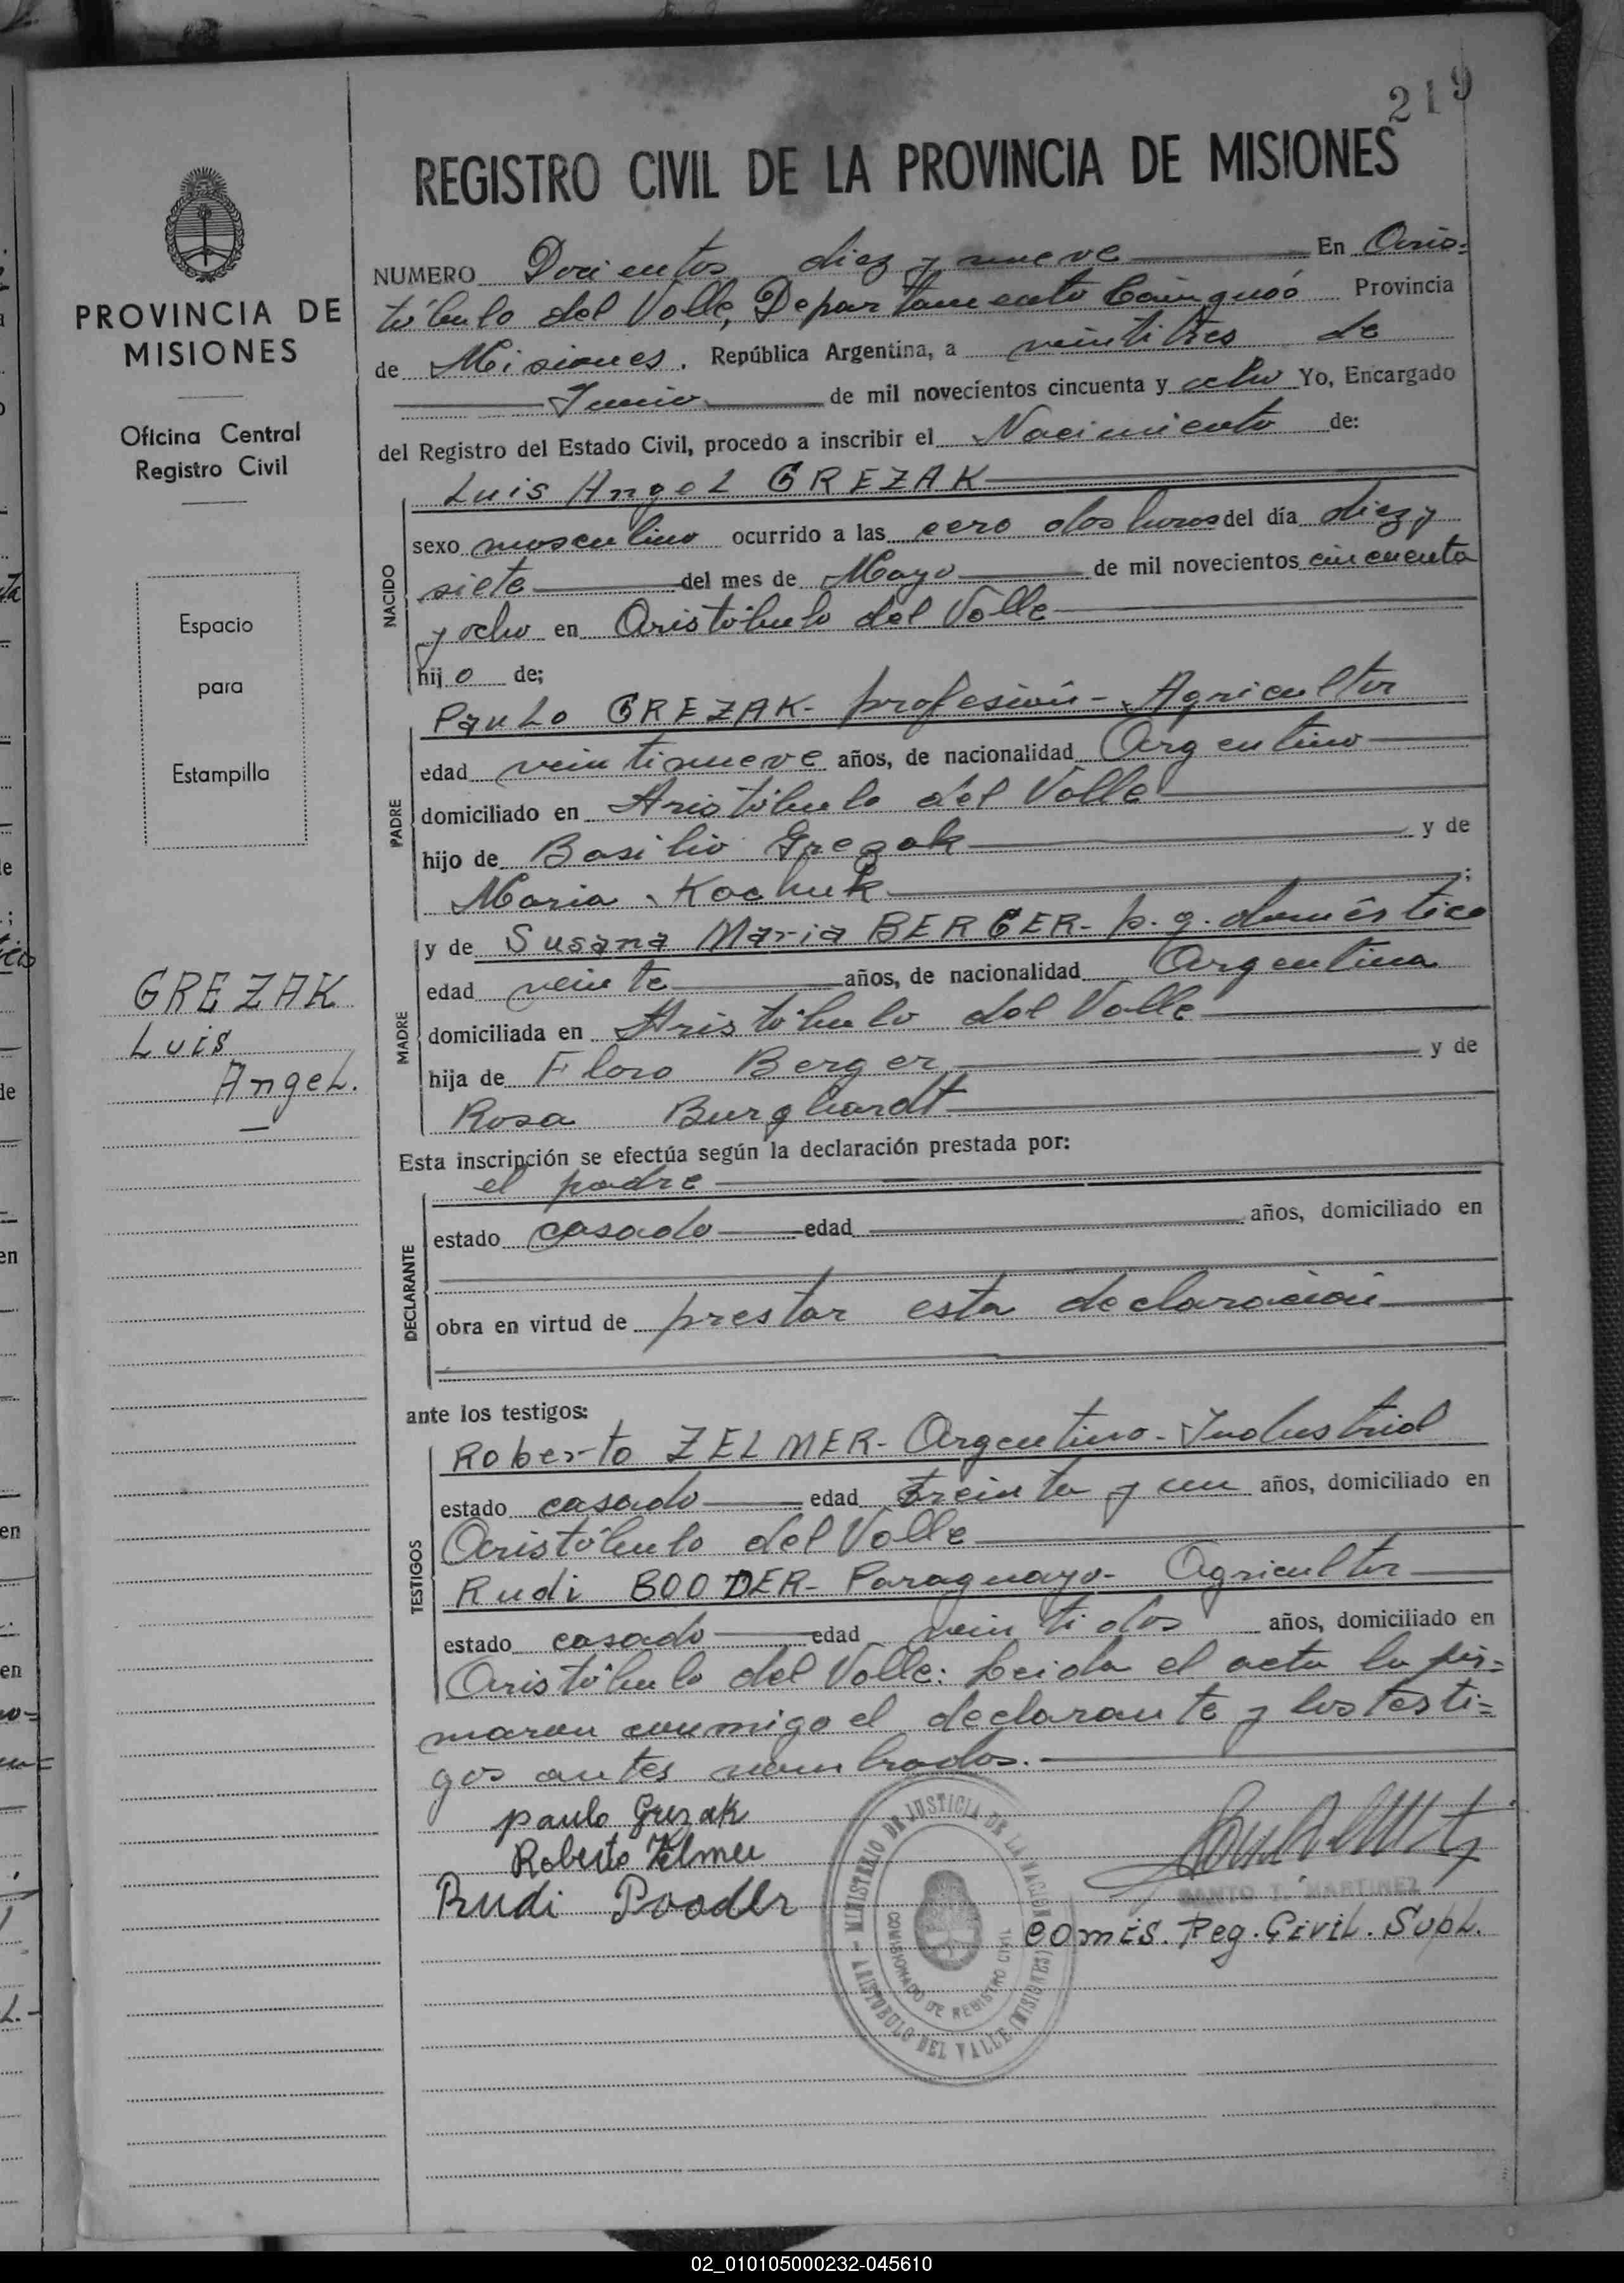 219
REGISTRO CIVIL DE LA PROVINCIA DE MISIONES
NUMERO Docientos diez y nueve En Aris=
tóbulo del Valle, Departamento Cainguás Provincia
de Misiones. República Argentina, a veintitres de
Junio de mil novecientos cincuenta y ocho Yo, Encargado
del Registro del Estado Civil, procedo a inscribir el Nacimiento de:
Luis Angel GREZAK
NACIDO
sexo masculino ocurrido a las cero dos horas del día diez y
siete del mes de Mayo de mil novecientos cincuenta
y ocho en Aristóbulo del Valle
hijo de;
Paulo GREZAK- profesión- Agricultor
PADRE
edad veintinueve años, de nacionalidad Argentino
domiciliado en Aristóbulo del Valle
hijo de Basilio Grezak y de
Maria Kochuk ;
MADRE
y de Susana Maria BERGER- p.q. doméstico
edad veinte años, de nacionalidad Argentina
domiciliada en Aristóbulo del Valle
hija de Floro Berger y de
Rosa Burghardt
Esta inscripción se efectúa según la declaración prestada por:
el padre
DECLARANTE
estado casado edad años, domiciliado en
obra en virtud de prestar esta declaración
ante los testigos:
Roberto ZELMER- Argentino- Industrial
TESTIGOS
estado casado edad treinta y un años, domiciliado en
Aristóbulo del Valle
Rudi BOODER- Paraguayo- Agricultor
estado casado edad veintidos años, domiciliado en
Aristóbulo del Valle: Leida el acta la fir=
maron conmigo el declarante y los testi=
gos antes nombrados.-
paulo Grezak
Roberto Zelmer
Rudi Booder
SANTO T. MARTINEZ
comis. Reg. Civil. Supl.
MINISTERIO DE JUSTICIA DE LA NACION
COMISIONADO DE REGISTRO CIVIL
ARISTOBULO DEL VALLE (MISIONES)
PROVINCIA DE
MISIONES
Oficina Central
Registro Civil
Espacio
para
Estampilla
GREZAK
Luis
Angel.
02_010105000232-045610